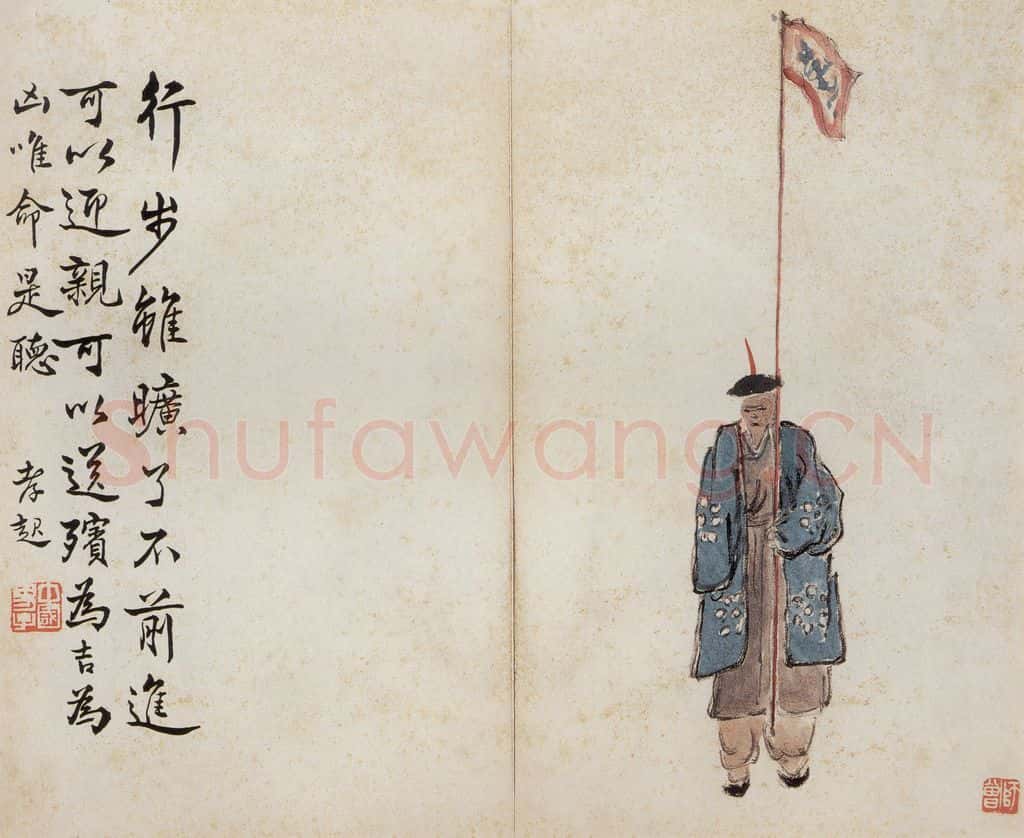 行步雖曠了不前進
可以迎親可以送殯為吉為
凶唯命是聽
孝起
師曾
Shufawang.CN